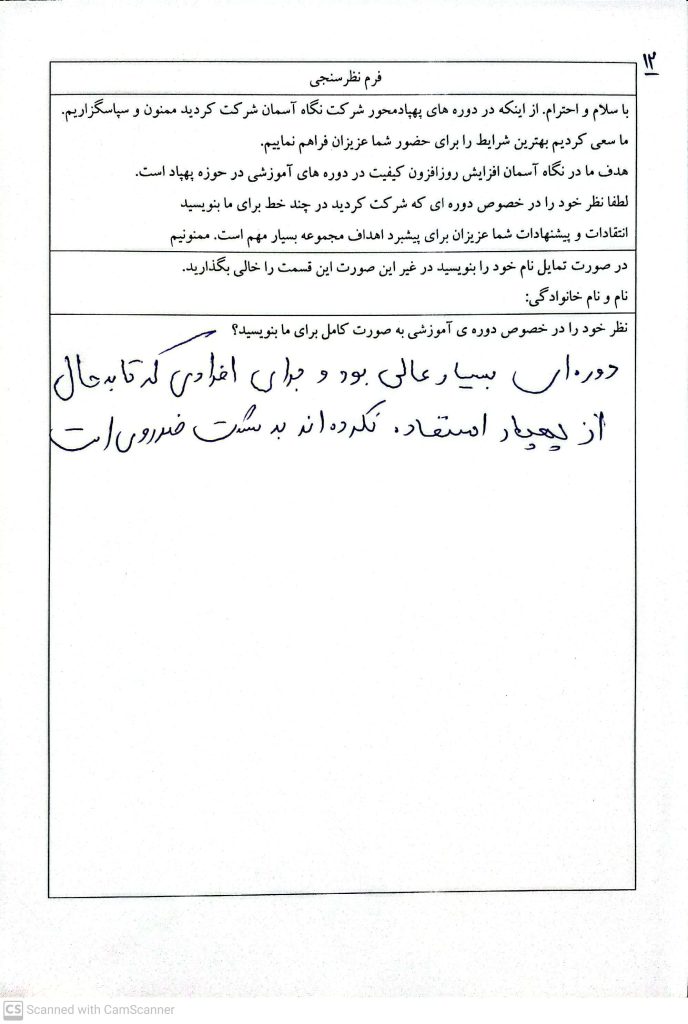 ۱۲
فرم نظرسنجی
با سلام و احترام. از اینکه در دوره های پهپادمحور شرکت نگاه آسمان شرکت کردید ممنون و سپاسگزاریم.
ما سعی کردیم بهترین شرایط را برای حضور شما عزیزان فراهم نماییم.
هدف ما در نگاه آسمان افزایش روزافزون کیفیت در دوره های آموزشی در حوزه پهپاد است.
لطفا نظر خود را در خصوص دوره ای که شرکت کردید در چند خط برای ما بنویسید
انتقادات و پیشنهادات شما عزیزان برای پیشبرد اهداف مجموعه بسیار مهم است. ممنونیم
در صورت تمایل نام خود را بنویسید در غیر این صورت این قسمت را خالی بگذارید.
نام و نام خانوادگی:
نظر خود را در خصوص دوره ی آموزشی به صورت کامل برای ما بنویسید؟
دوره‌ای بسیار عالی بود و برای افرادی که تا به حال
از پهپاد استفاده نکرده‌اند به شدت ضروری است
CS Scanned with CamScanner